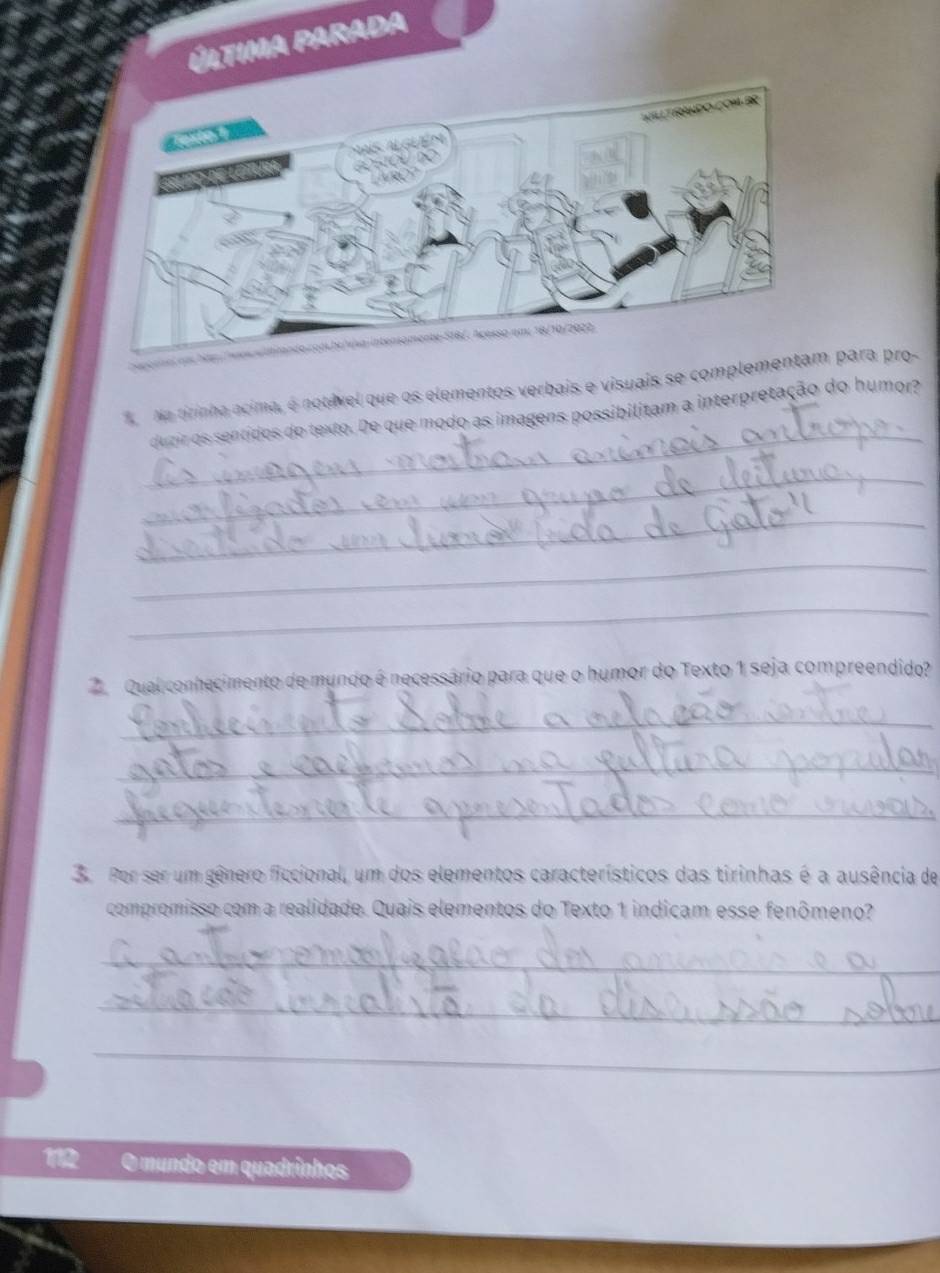 ÚLTIMA PARADA
WILLTIRANDO.COM.BR
Texto 1
MAIS ALGUÉM
GOSTOU DO
LIVRO?
GRUPO DE LEITURA
Acesso em: 18/10/2022.
1. Na tirinha acima, é notável que os elementos verbais e visuais se complementam para pro-
duzir os sentidos do texto. De que modo as imagens possibilitam a interpretação do humor?
As imagens mostram animais antropo-
morfizados em um grupo de leitura,
discutindo um livro "Vida de Gato"
2. Qual conhecimento de mundo é necessário para que o humor do Texto 1 seja compreendido?
Conhecimento Sobre a relação entre
gatos e cachorros na cultura popular,
frequentemente apresentados como rivais.
3. Por ser um gênero ficcional, um dos elementos característicos das tirinhas é a ausência de
compromisso com a realidade. Quais elementos do Texto 1 indicam esse fenômeno?
A antropomorfização dos animais e a
situação da discussão sobre
112 O mundo em quadrinhos